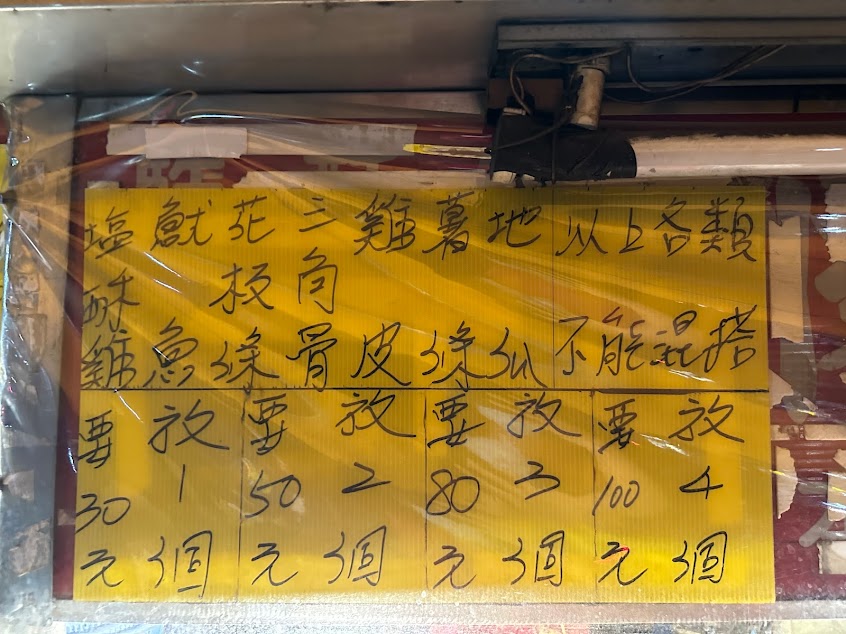 塩酥雞
魷魚
花枝條
三角骨
雞皮
薯條
地瓜
以上各類
不能混搭
要30元
放1個
要50元
放2個
要80元
放3個
要100元
放4個